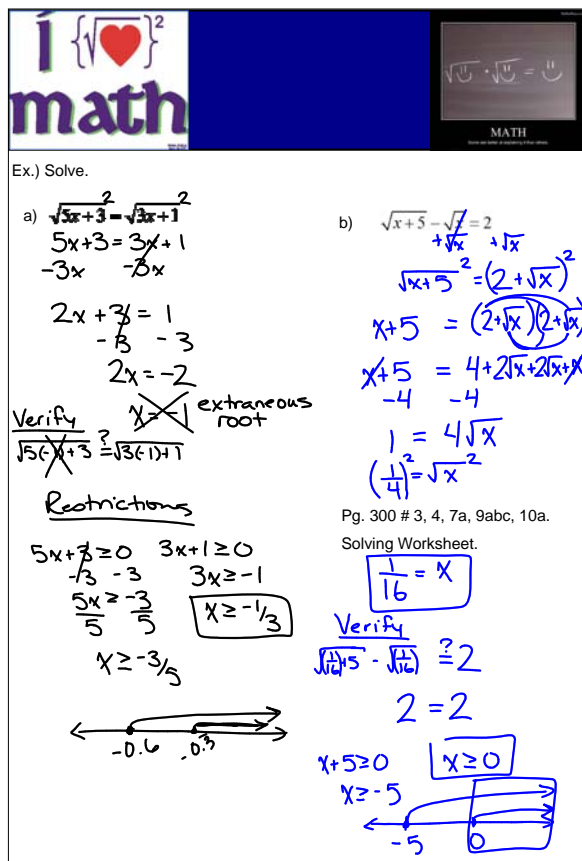 I {√♥}²
math
√☺ · √☺ = ☺
MATH
Ex.) Solve.
a) √(5x+3)² = √(3x+1)²
5x+3 = 3x+1
-3x -3x
2x + 3 = 1
-3 -3
2x = -2
x = -1 extraneous root
Verify
√(5(-1)+3) ≟ √(3(-1)+1)
Restrictions
5x+3 ≥ 0 3x+1 ≥ 0
-3 -3 3x ≥ -1
5x/5 ≥ -3/5 x ≥ -1/3
x ≥ -3/5
-0.6 -0.3
b) √(x+5) - √x = 2
+√x +√x
√(x+5)² = (2+√x)²
x+5 = (2+√x)(2+√x)
x+5 = 4+2√x+2√x+x
-4 -4
1 = 4√x
(1/4)² = √x²
Pg. 300 # 3, 4, 7a, 9abc, 10a.
Solving Worksheet.
1/16 = x
Verify
√((1/16)+5) - √(1/16) ≟ 2
2 = 2
x+5 ≥ 0 x ≥ 0
x ≥ -5
-5 0